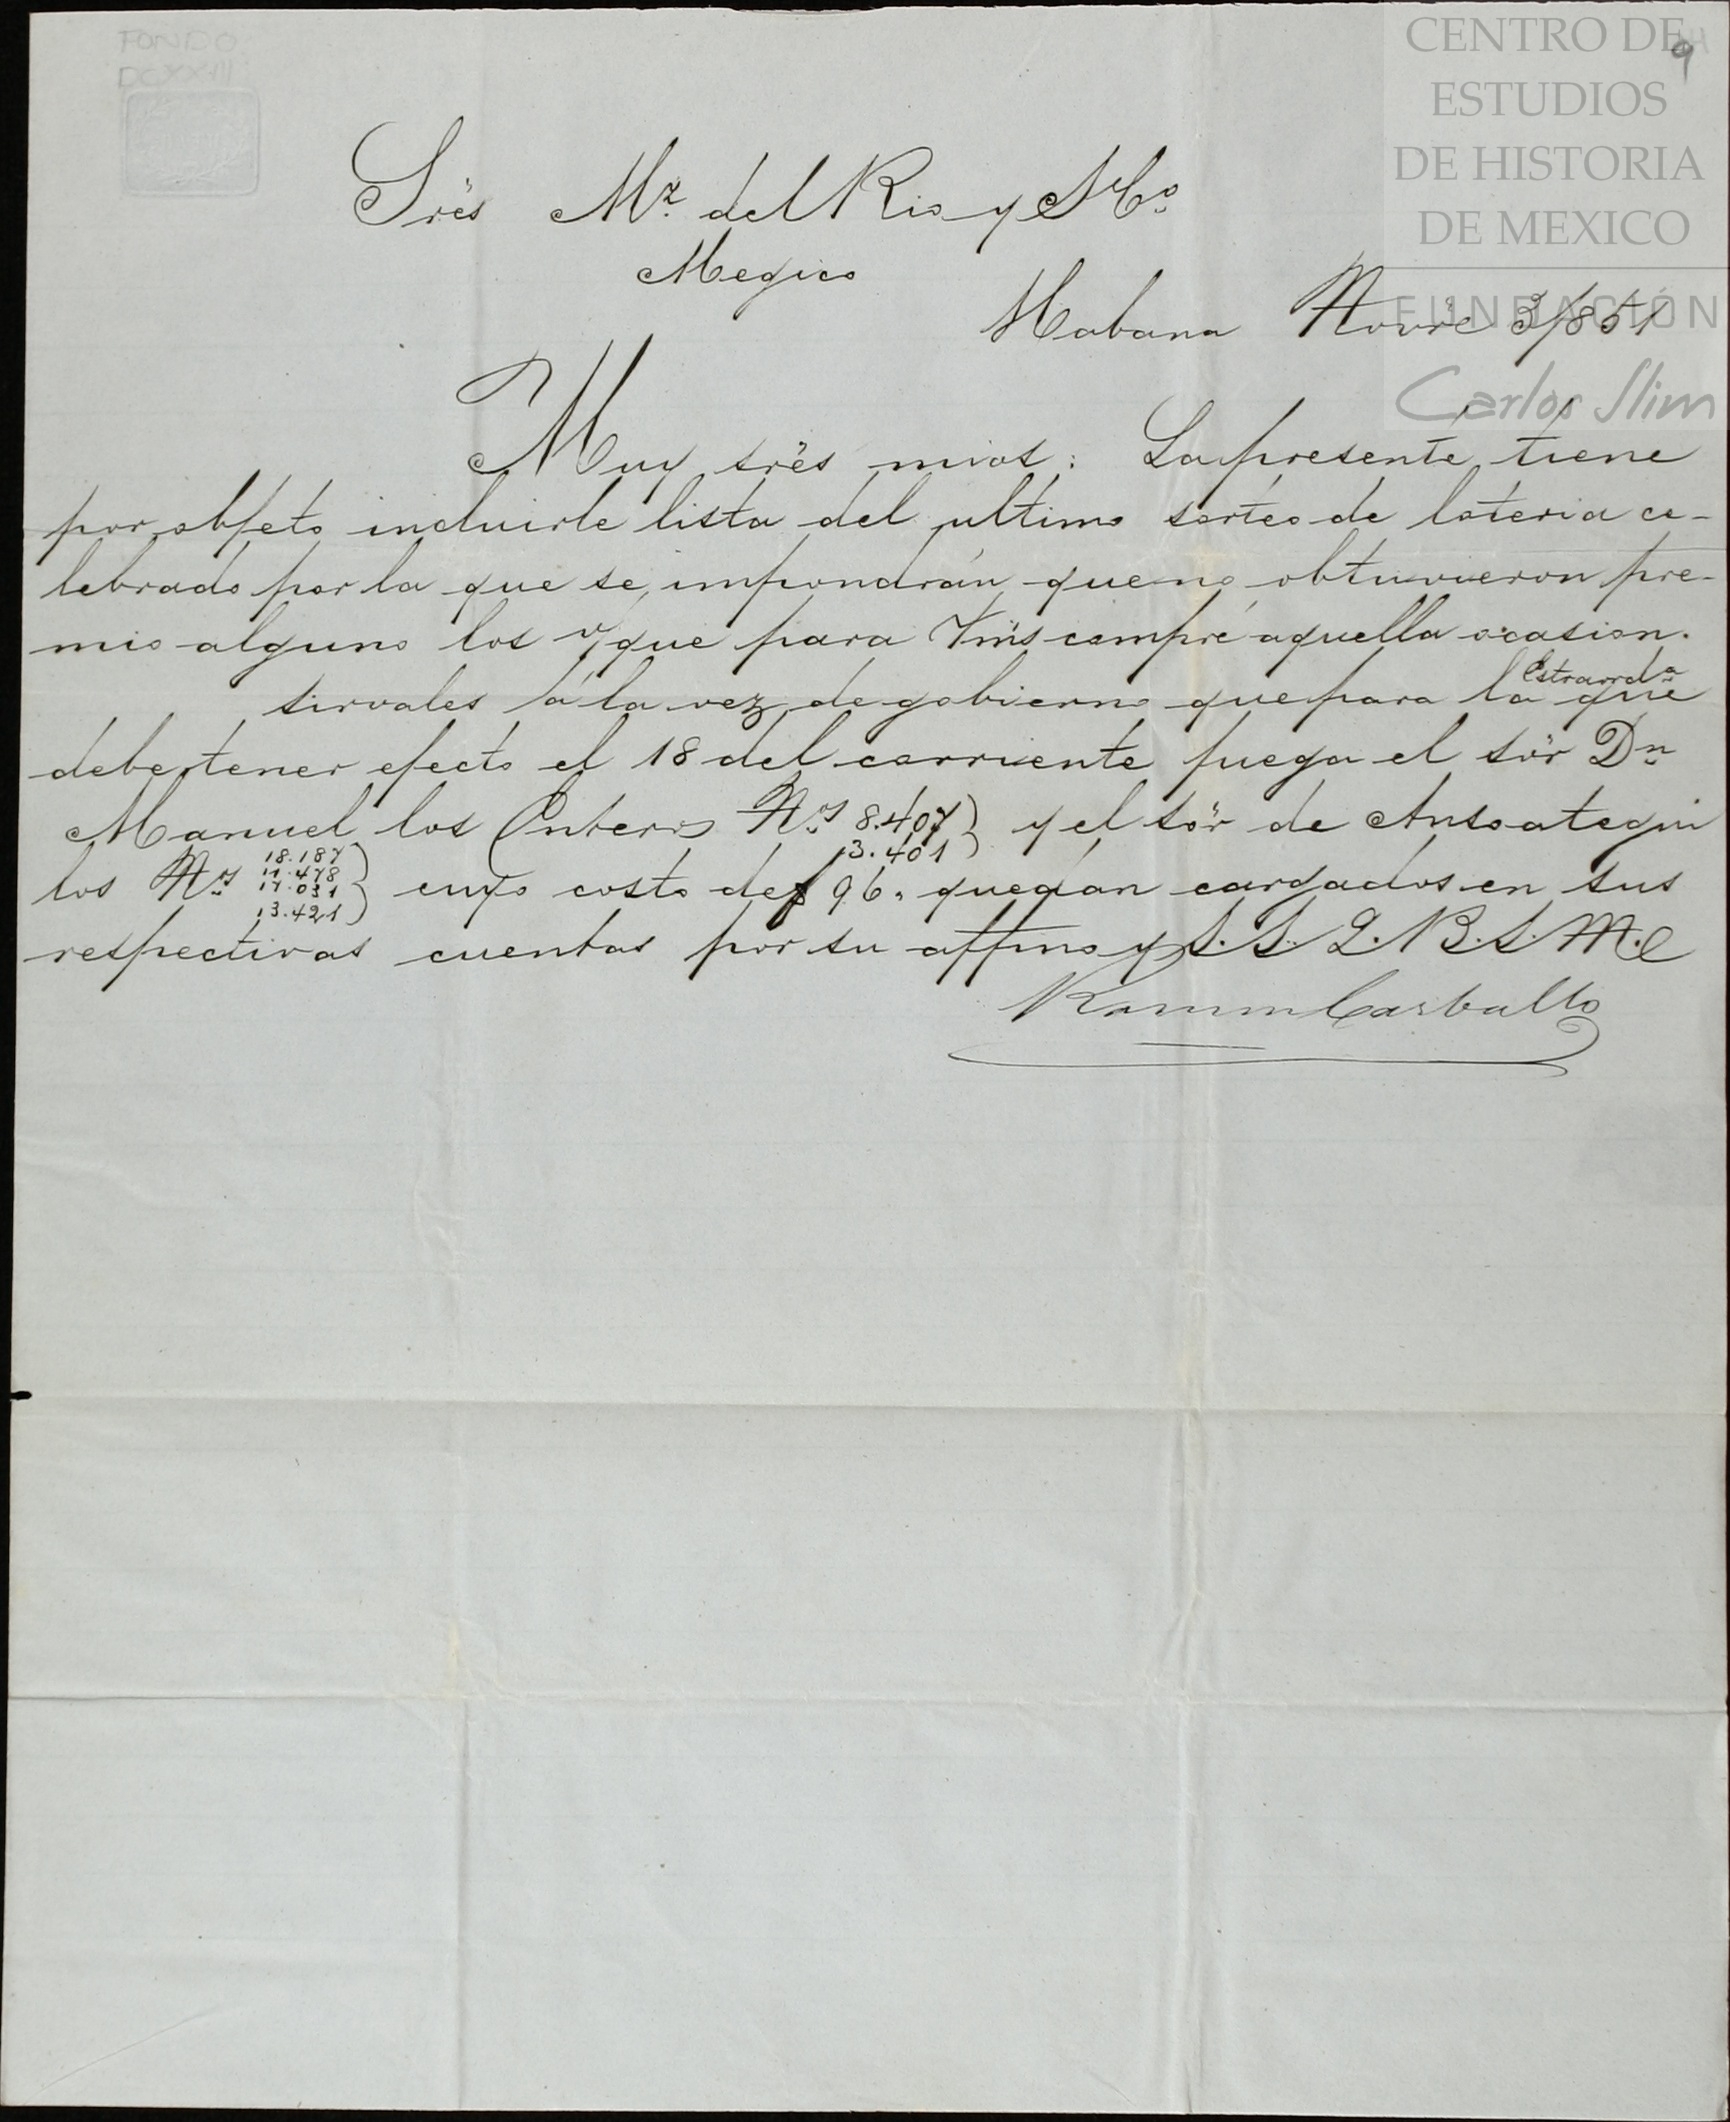 FONDO
DCXXIII
CENTRO DE
ESTUDIOS
DE HISTORIA
DE MEXICO
FUNDACIÓN
Carlos Slim
9
Srẽs Mz. del Rio y Hos
Megico
Habana Novre 3/851
Muy srẽs mios: La presente tiene
por objeto incluirle lista del ultimo sorteo de loteria ce-
lebrado por la que se impondrán que no obtuvieron pre-
mio alguno los que para Vms compré aquella ocasion.
Sirvales á la vez de gobierno que para la Estraorda que
debe tener efecto el 18 del corriente juega el sör Dn
Manuel los Enteros Nos 8.407 } y el sör de Ansoategui
13.401
los Nos 18.187 } cuyo costo de $ 96. quedan cargados en sus
11.478
17.031
13.421
respectivas cuentas por su affmo y S. S. Q. B. S. M.
Ramon Carballo